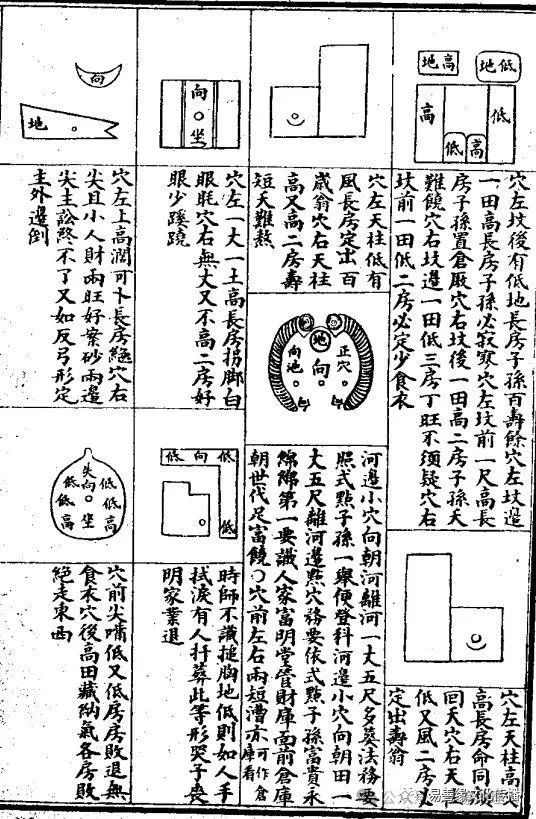 地低
地高
高
低
低
高
穴左坟後有低地長房子孫百壽餘穴左坟邉
一田高長房子孫必寂寞穴左坟前一尺高長
房子孫置倉厫穴右坟後一田高二房子孫天
難饒穴右坟邉一田低三房丁旺不須疑穴右
坟前一田低二房必定少食衣
穴左天柱高
高長房命同
回天穴右天
低又風二房
定出壽翁
穴左天柱低有
風長房定出百
歳翁穴右天柱
高又高二房壽
短夭難熬
正穴
地
向
向池
河邉小穴向朝河離河一大五尺多葵法務要
照式點子孫一舉便登科河邉小穴向朝田一
大五尺離河邉點穴務要依式點子孫富貴永
綿綿第一要識人家富明堂管財庫面前倉庫
朝世代足富饒〇穴前左右兩短漕亦可作倉庫看
向
坐
穴左一大一土高長房拐脚白
眼眊穴右無丈又不高二房好
眼少蹊蹺
低向低
低
時師不識搥胸地低則如人手
拭淚有人扦葬此等形哭子喪
明家業退
向
地
穴左上高濶可卜長房絶穴右
尖且小人財兩旺好案砂兩邉
尖主訟終不了又如反弓形定
主外邉倒
尖向
坐
低低高
低低高
穴前尖嘴低又低房房敗退無
食衣穴後高田藏陷氣各房敗
絶走東西
公众号
易善缘